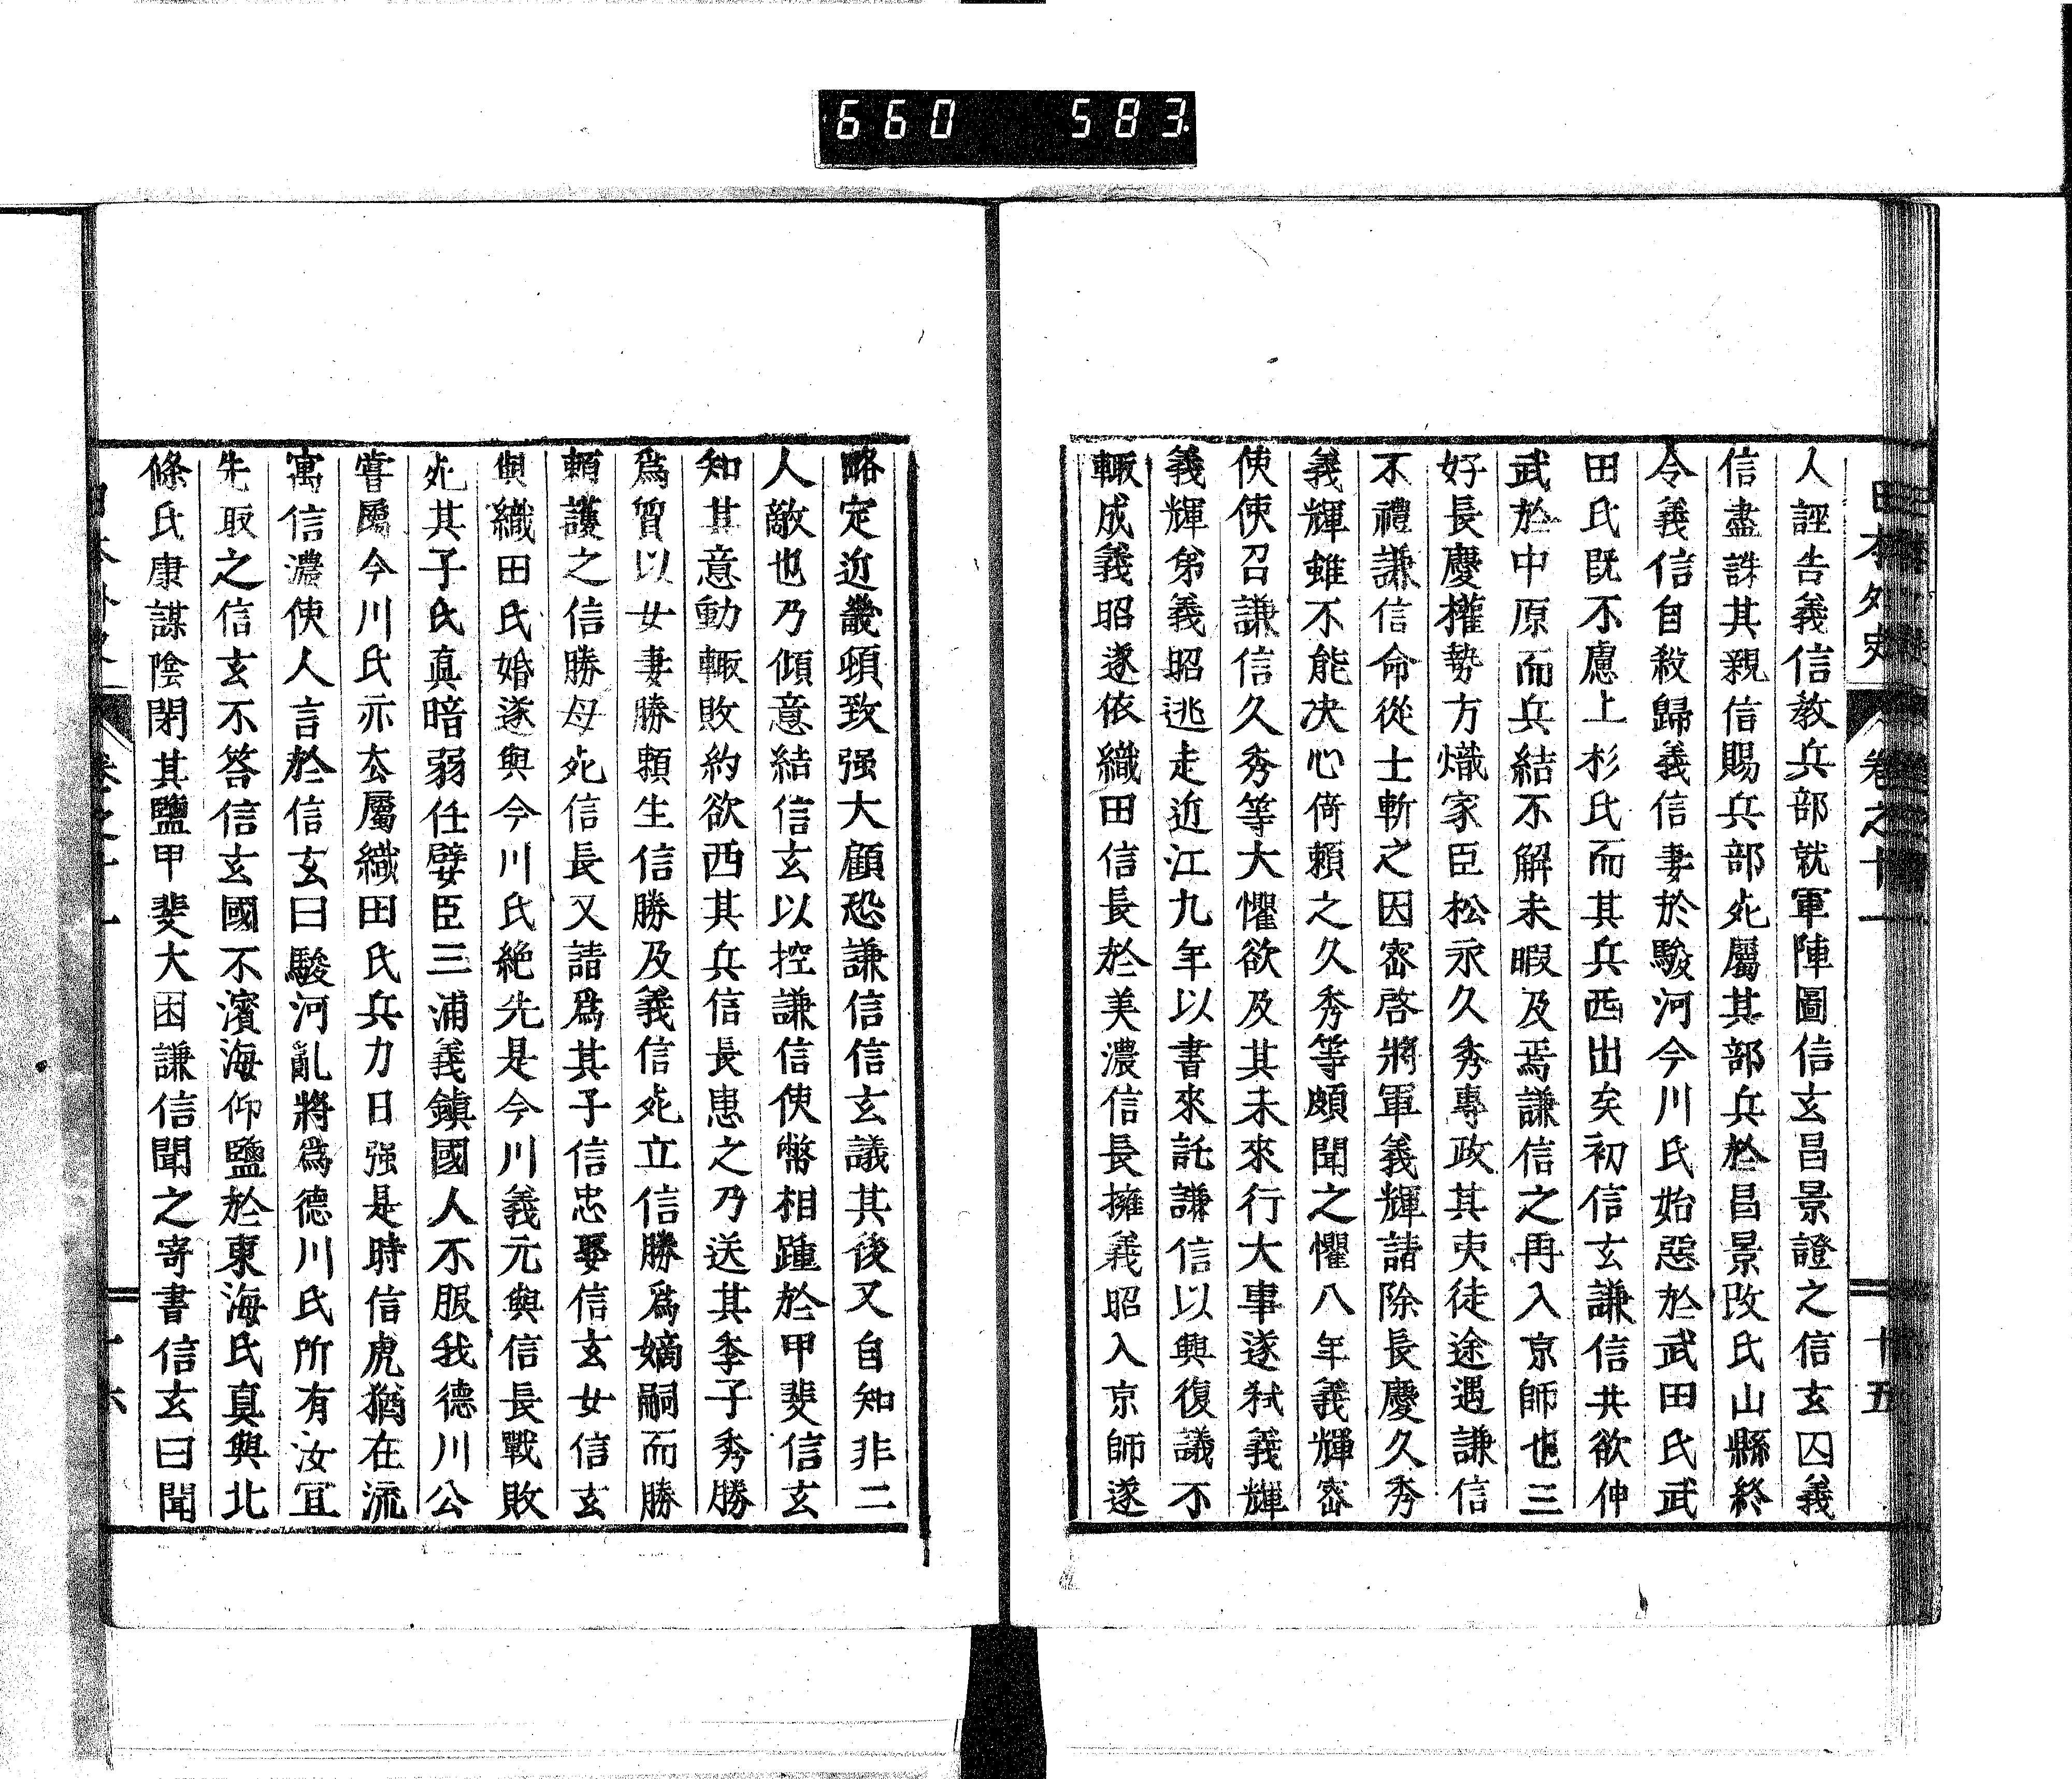 660 583
日本外史 卷之十一 十五
人誣告義信教兵部就軍陣圖信玄昌景證之信玄囚義
信盡誅其親信賜兵部死屬其部兵於昌景改氏山縣終
令義信自殺歸義信妻於駿河今川氏始惡於武田氏武
田氏既不慮上杉氏而其兵西出矣初信玄謙信共欲仲
武於中原而兵結不解未暇及焉謙信之再入京師也三
好長慶權勢方熾家臣松永久秀專政其吏徒途遇謙信
不禮謙信命從士斬之因密啓將軍義輝請除長慶久秀
義輝雖不能决心倚賴之久秀等頗聞之懼八年義輝密
使使召謙信久秀等大懼欲及其未來行大事遂弑義輝
義輝弟義昭逃走近江九年以書來託謙信以興復議不
輙成義昭遂依織田信長於美濃信長擁義昭入京師遂
略定近畿頓致强大顧恐謙信信玄議其後又自知非二
人敵也乃傾意結信玄以控謙信使幣相踵於甲斐信玄
知其意動輙敗約欲西其兵信長患之乃送其季子秀勝
爲質以女妻勝賴生信勝及義信死立信勝爲嫡嗣而勝
賴護之信勝母死信長又請爲其子信忠娶信玄女信玄
與織田氏婚遂與今川氏絶先是今川義元與信長戰敗
死其子氏真暗弱任嬖臣三浦義鎮國人不服我德川公
嘗屬今川氏亦去屬織田氏兵力日强是時信虎猶在流
寓信濃使人言於信玄曰駿河亂將爲德川氏所有汝宜
先取之信玄不答信玄國不濱海仰鹽於東海氏真與北
條氏康謀陰閉其鹽甲斐大困謙信聞之寄書信玄曰聞